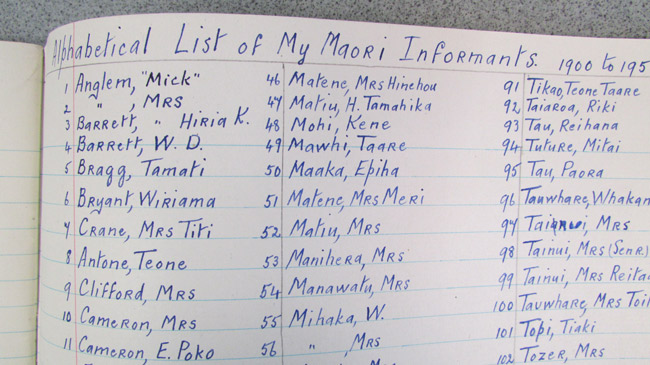 Alphabetical List of My Maori Informants. 1900 to 195
1 Anglem, "Mick"
2 " , Mrs
3 Barrett, " Hiria K.
4 Barrett, W. D.
5 Bragg, Tamati
6 Bryant, Wiriama
7 Crane, Mrs Titi
8 Antone, Teone
9 Clifford, Mrs
10 Cameron, Mrs
11 Cameron, E. Poko
46 Matene, Mrs Hinehou
47 Matiu, H. Tamahika
48 Mohi, Kene
49 Mawhi, Taare
50 Maaka, Epiha
51 Matene, Mrs Meri
52 Matiu, Mrs
53 Manihera, Mrs
54 Manawatu, Mrs
55 Mihaka, W.
56 " , Mrs
91 Tikao, Teone Taare
92 Taiaroa, Riki
93 Tau, Reihana
94 Tuture, Mitai
95 Tau, Paora
96 Tauwhare, Whakan
97 Tainui, Mrs
98 Tainui, Mrs (Senr.)
99 Tainui, Mrs Reita
100 Tauwhare, Mrs Toi
101 Topi, Tiaki
102 Tozer, Mrs